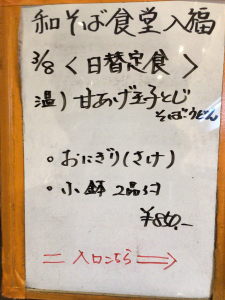 和そば食堂入福
3/8 <日替定食>
温) 甘あげ玉子とじ
そばorうどん
・おにぎり(さけ)
・小鉢 2品付
¥850.-
= 入口こちら ⇒